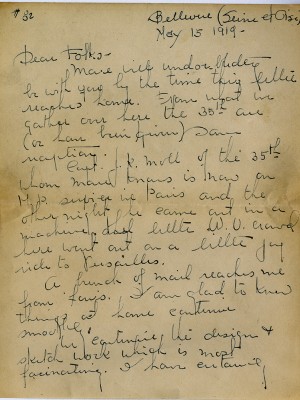 # 32
Bellevue (Seine et Oise)
May 15 1919-
Dear Folks-
will undoubtedly
be with you by the time this letter
reaches home. From what we
gather over here the 35th are
(or have been given)
reception.
Capt. J. R. Mott of the 35th
whom knows is now on
M.P. service in Paris and the
other night he came out in a
machine, and little crowd
here went out on a little joy
ride to Versailles.
A bunch of mail reaches me
from I am glad to know
things at home continue
smoothly
continuing the design &
sketch work which is most
fascinating. I have certainly